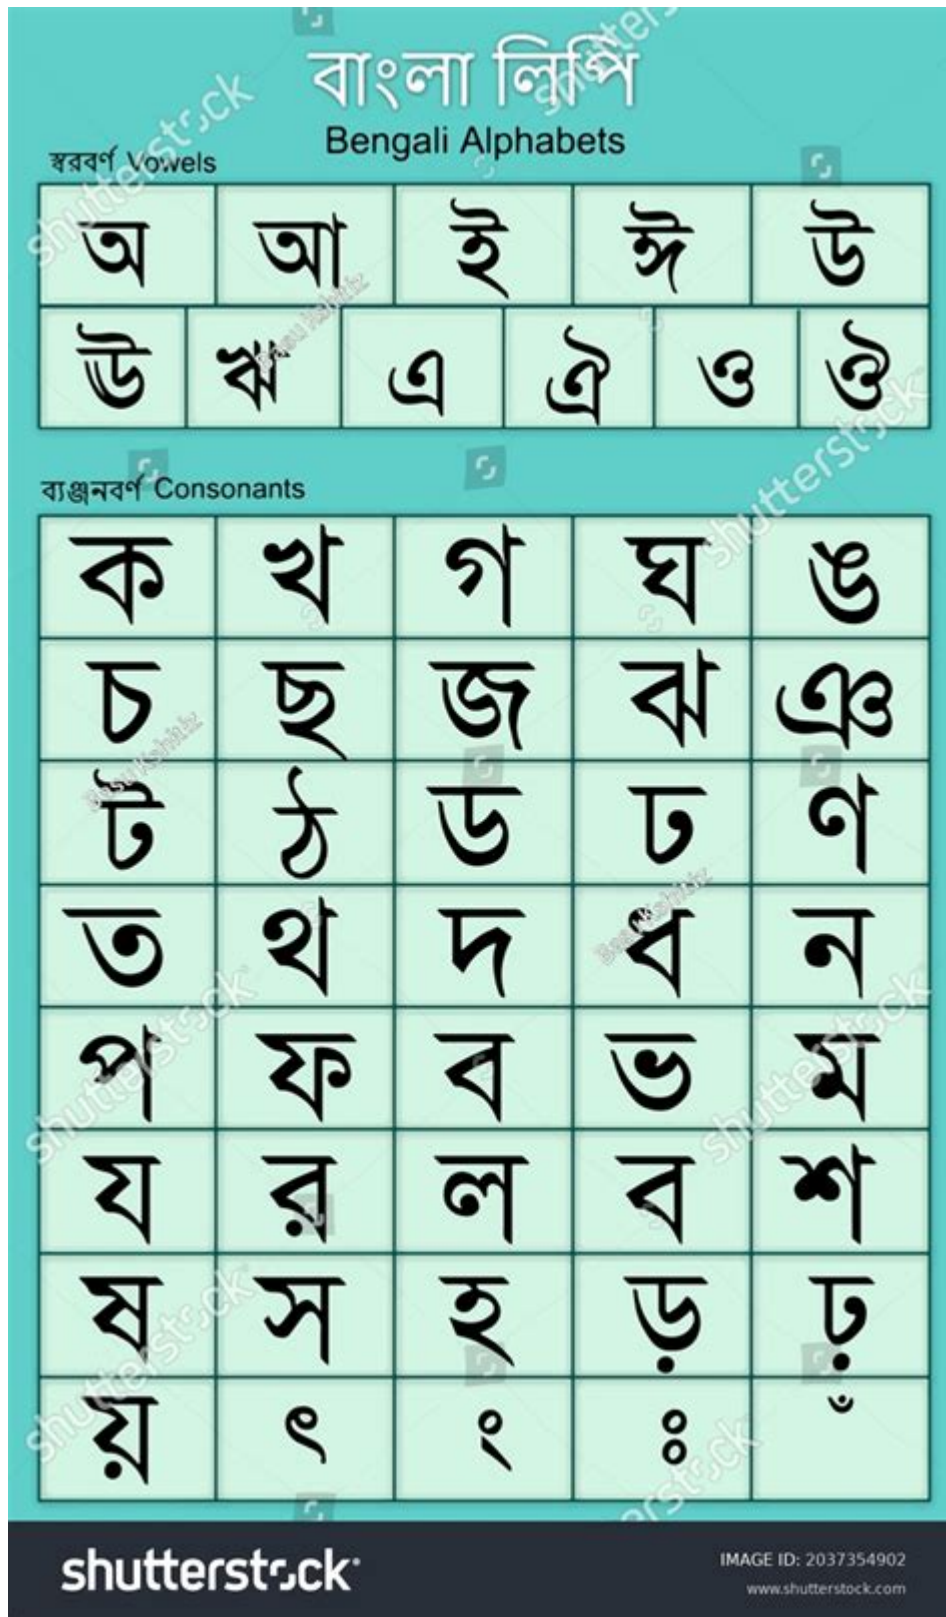 বাংলা লিপি
Bengali Alphabets
স্বরবর্ণ Vowels
অ আ ই ঈ উ
ঊ ঋ এ ঐ ও ঔ
ব্যঞ্জনবর্ণ Consonants
ক খ গ ঘ ঙ
চ ছ জ ঝ ঞ
ট ঠ ড ঢ ণ
ত থ দ ধ ন
প ফ ব ভ ম
য র ল ব শ
ষ স হ ড় ঢ়
য় ৎ ং ः ঁ
shutterstock
IMAGE ID: 2037354902
www.shutterstock.com